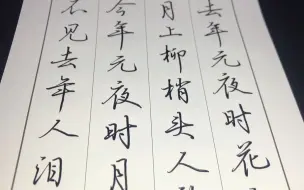 去年元夜时花
月上柳梢头人
今年元夜时月
不见去年人泪